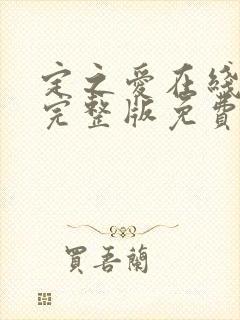 定之愛在綫
完整版免費
買吾蘭